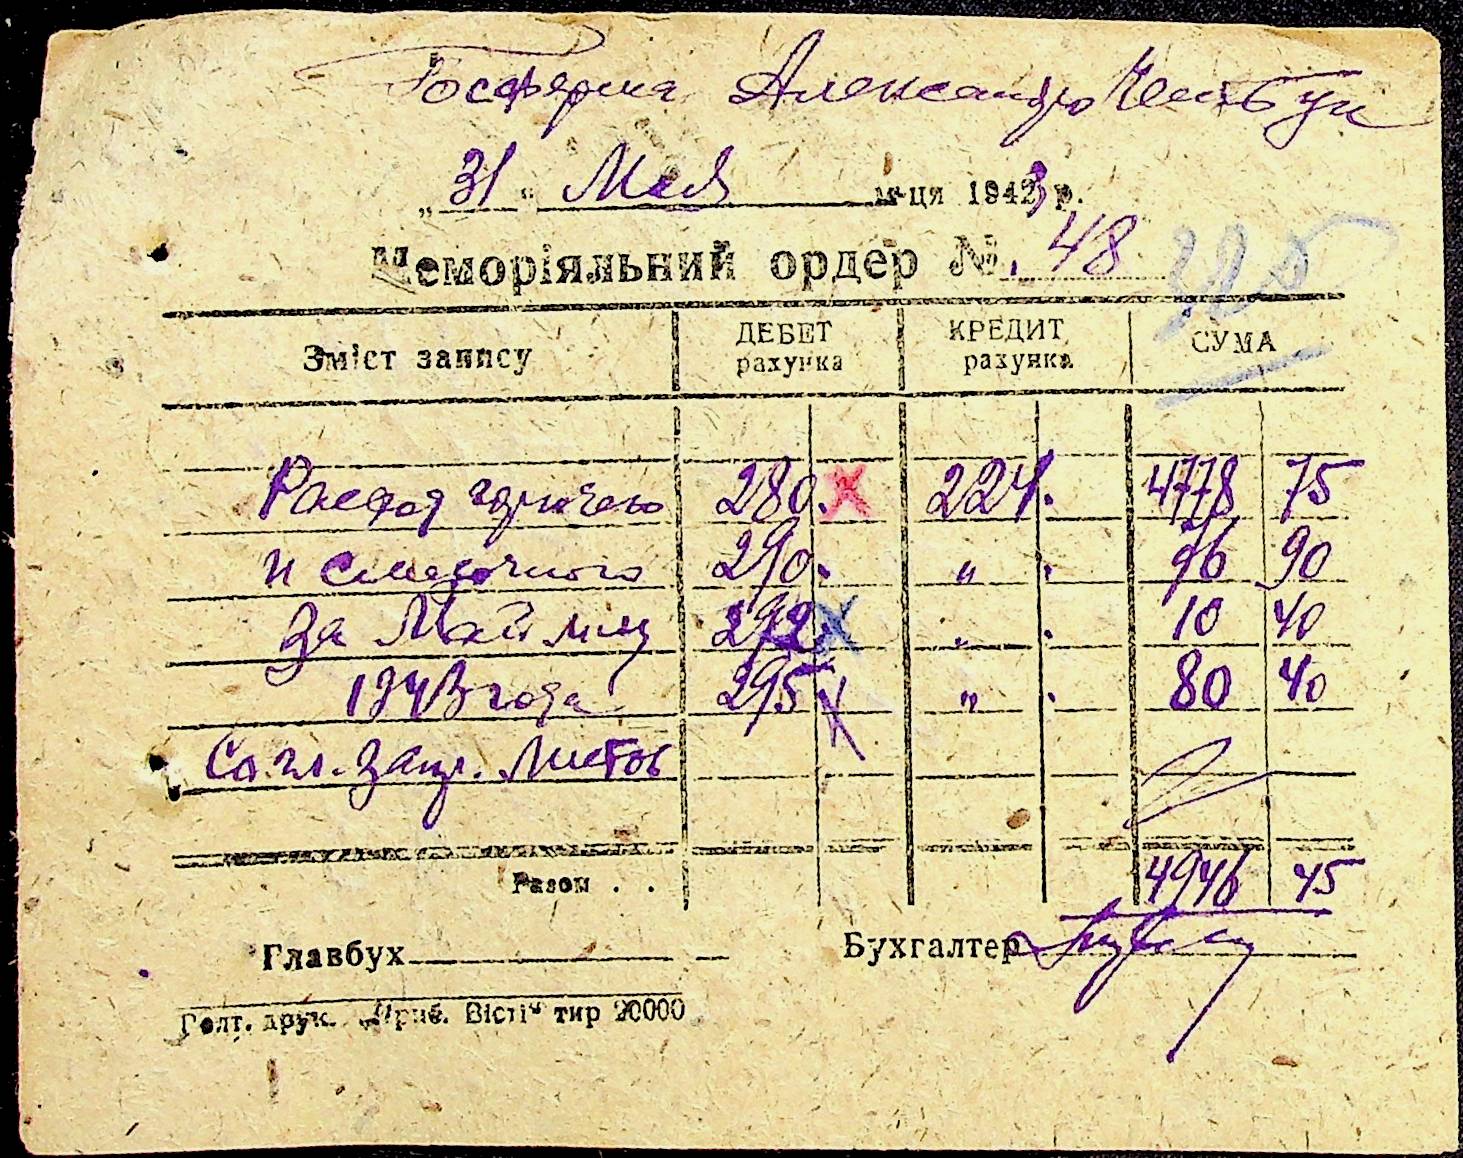 Госферма Александро
„31“ Мая м-ця 1943 р.
Меморіяльний ордер № 48
Зміст запису ДЕБЕТ рахунка КРЕДИТ рахунка СУМА
Расход горючего 280. 224. 4778 75
и смазочного 290. " . 96 90
За Май м-ц 292. " . 10 40
1943 года 295 " . 80 40
Листов
Разом . . 4946 45
Главбух Бухгалтер
Голт. друк. „Приб. Вісті“ тир 20000